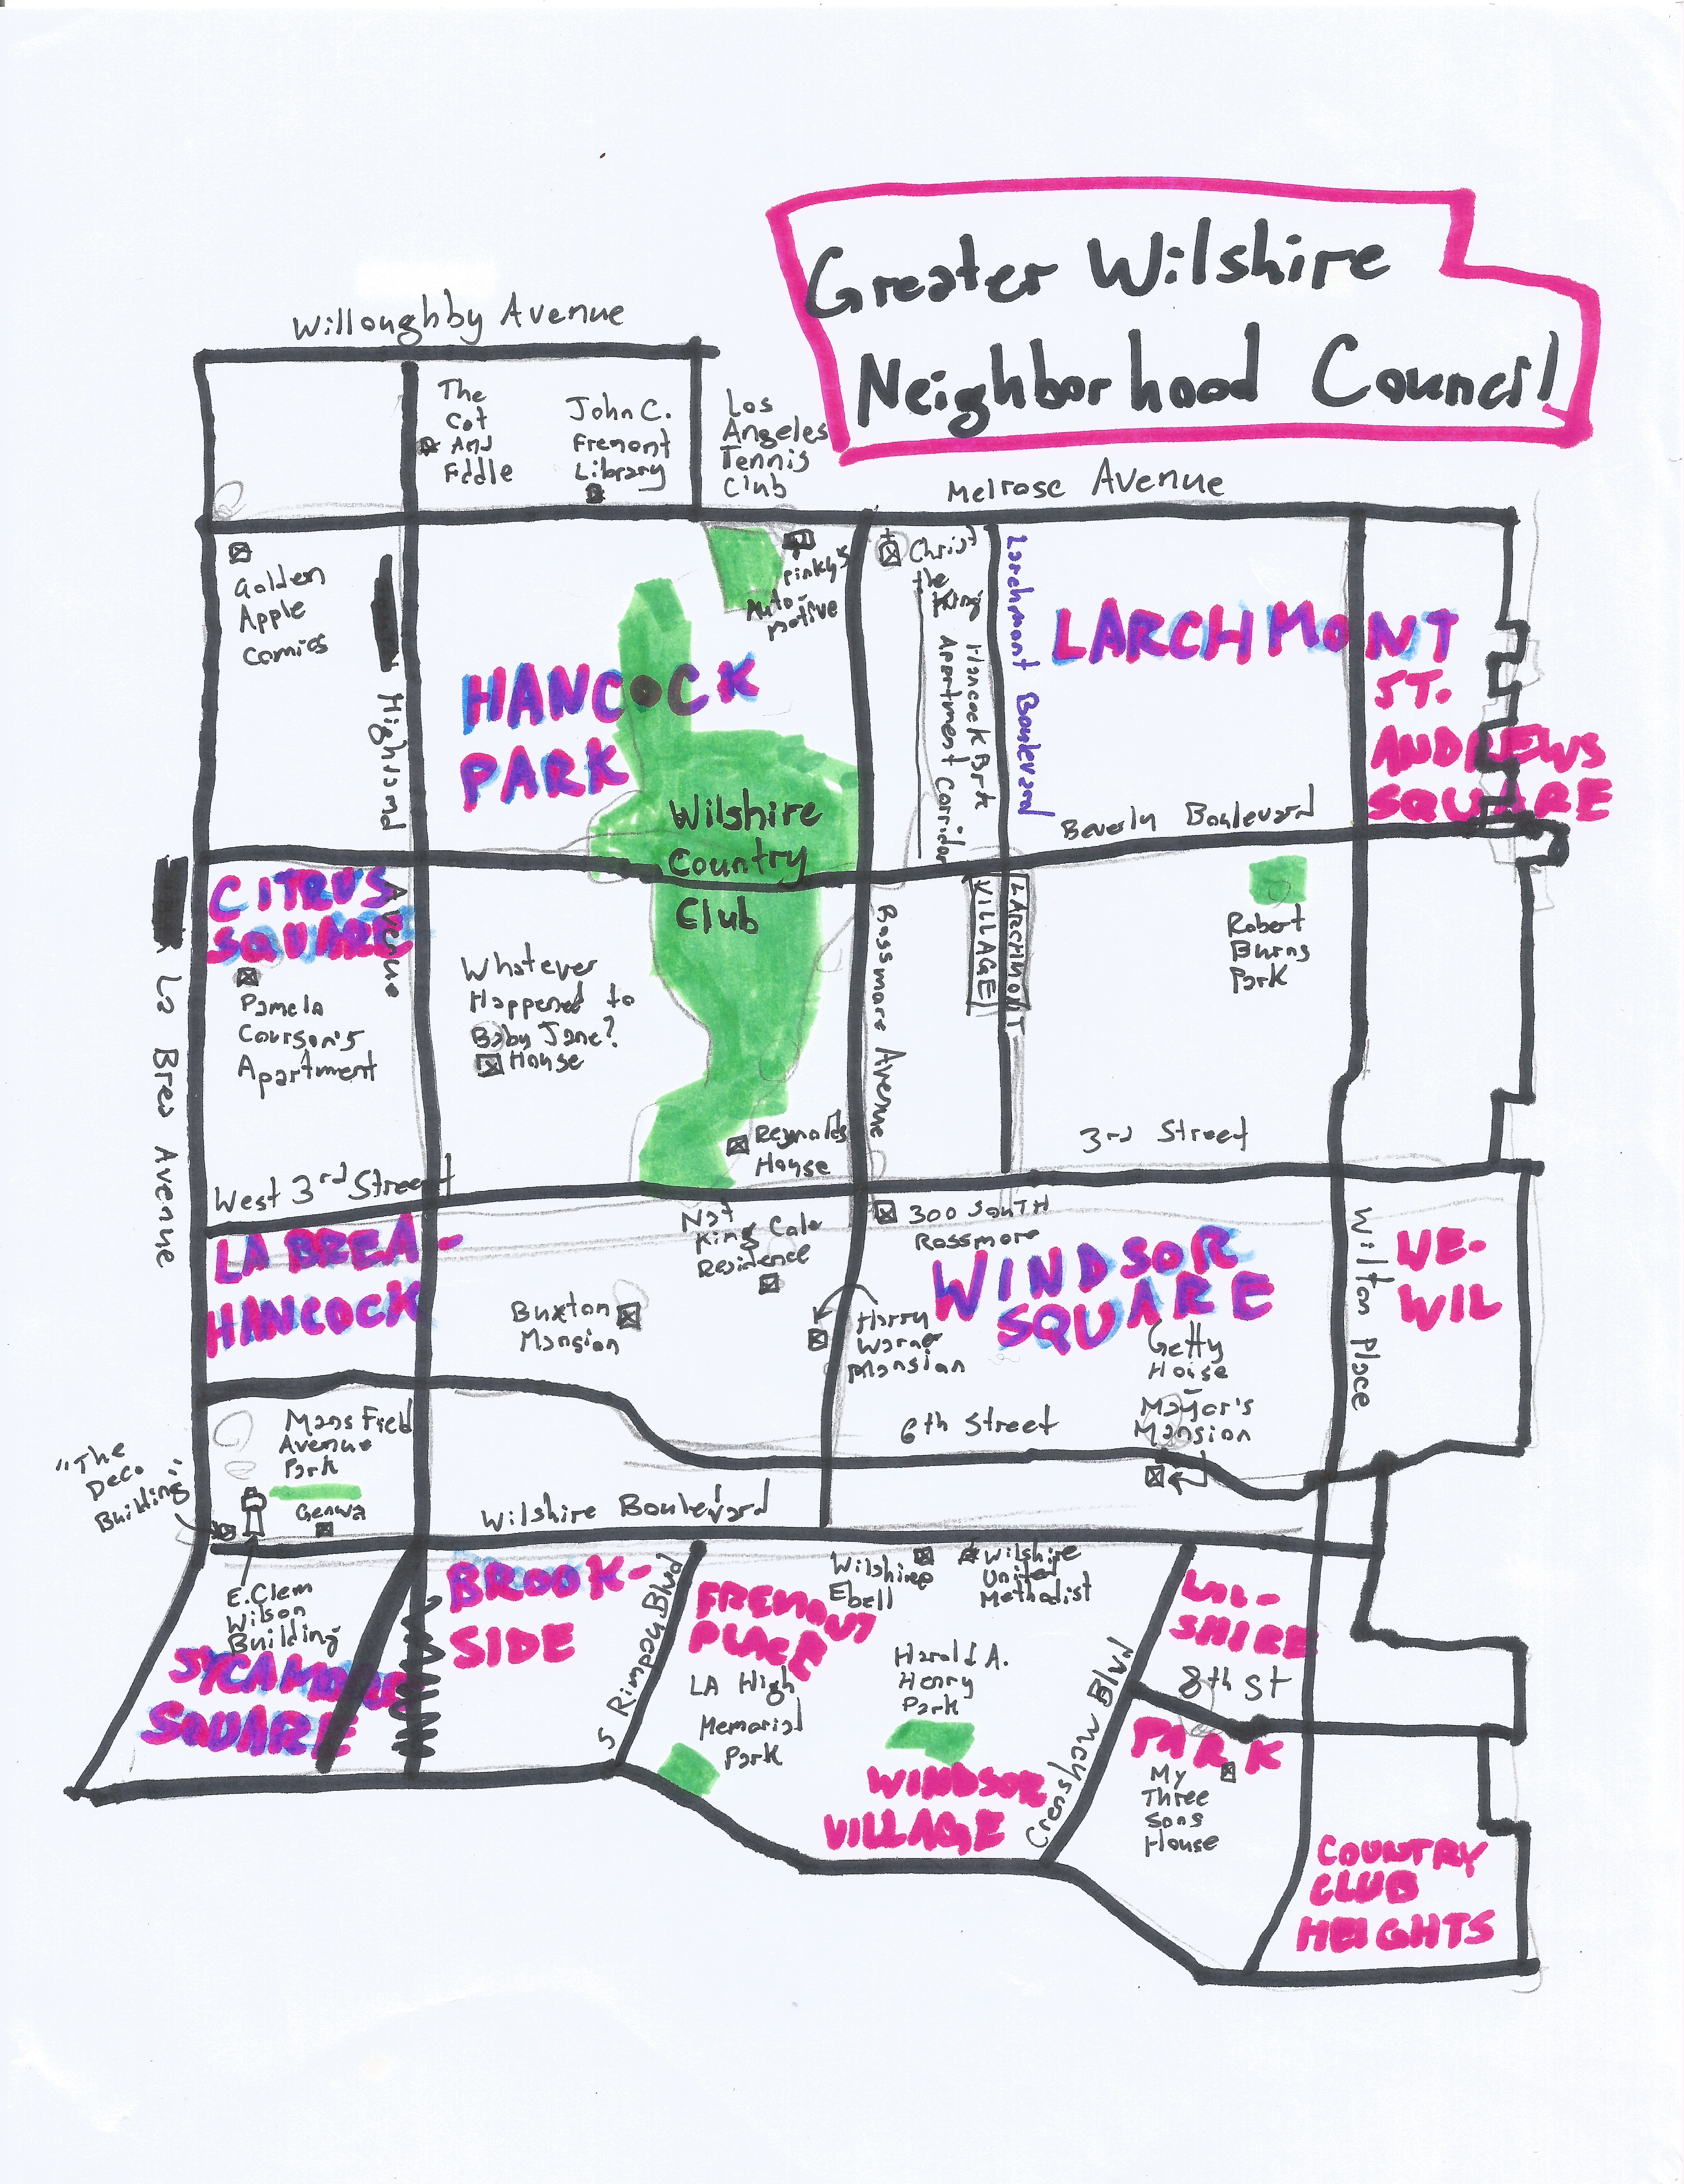 Greater Wilshire
Neighborhood Council
Willoughby Avenue
The
Cat
And
Fiddle
John C.
Fremont
Library
Los
Angeles
Tennis
Club
Melrose Avenue
Golden
Apple
Comics
Highland
Avenue
HANCOCK
PARK
Pinky's
Auto-
motive
Christ
the
King
Hancock Park
Apartment Corridor
Larchmont Boulevard
LARCHMONT
ST.
ANDREWS
SQUARE
Beverly Boulevard
Wilshire
Country
Club
CITRUS
SQUARE
Pamela
Courson's
Apartment
La Brea Avenue
Whatever
Happened to
Baby Jane?
House
Rossmore Avenue
LARCHMONT
VILLAGE
Robert
Burns
Park
Reynolds
House
West 3rd Street
3rd Street
LA BREA-
HANCOCK
Nat
King Cole
Residence
300 South
Rossmore
WINDSOR
SQUARE
Wilton Place
WE-
WIL
Buxton
Mansion
Harry
Warner
Mansion
Getty
House
-
Mayor's
Mansion
6th Street
"The
Deco
Building"
Mansfield
Avenue
Park
Genwa
Wilshire Boulevard
E. Clem
Wilson
Building
SYCAMORE
SQUARE
BROOK-
SIDE
S Rimpau Blvd
FREMONT
PLACE
LA High
Memorial
Park
Wilshire
Ebell
Wilshire
United
Methodist
Harold A.
Henry
Park
WINDSOR
VILLAGE
Crenshaw Blvd
WIL-
SHIRE
8th St
PARK
My
Three
Sons
House
COUNTRY
CLUB
HEIGHTS